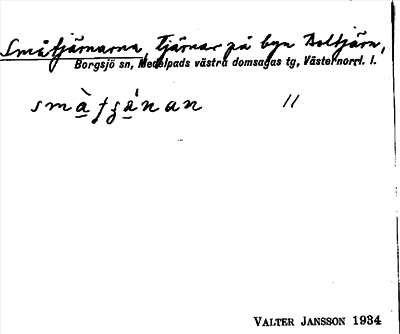 Småtjärnarna, Tjärnar på byn Boltjärn,
Borgsjö sn, Medelpads västra domsagas tg, Västernorrl. l.
småtʃänan //
VALTER JANSSON 1934